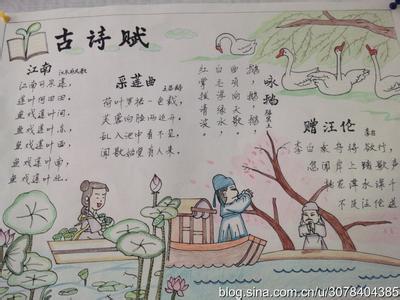 古诗赋
江南
江南可采莲,
莲叶何田田,
鱼戏莲叶间,
鱼戏莲叶东,
鱼戏莲叶西,
鱼戏莲叶南,
鱼戏莲叶北。
采莲曲 王昌龄
荷叶罗裙一色裁,
芙蓉向脸两边开。
乱入池中看不见,
闻歌始觉有人来。
咏鹅 骆宾王
鹅,鹅,鹅,
曲项向天歌,
白毛浮绿水,
红掌拨清波。
赠汪伦 李白
李白乘舟将欲行,
忽闻岸上踏歌声
桃花潭水深千
不及汪伦送
blog.sina.com.cn/u/3078404385